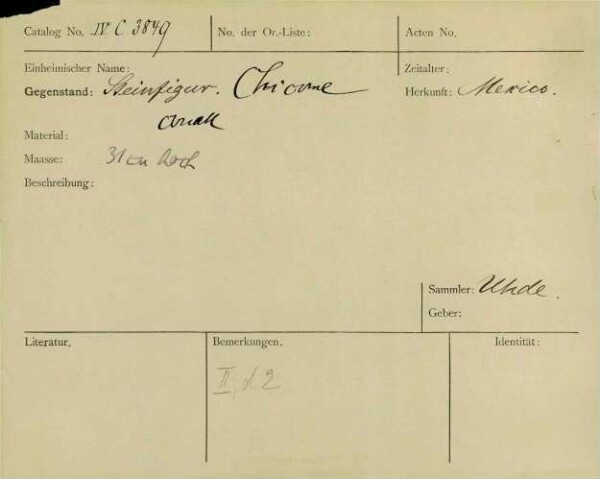 Catalog No. IV C 3849
No. der Or.-Liste:
Acten No.
Einheimischer Name:
Zeitalter:
Gegenstand: Steinfigur. Chicome
Herkunft: Mexico.
Material:
Maasse: 31 cm hoch
Beschreibung:
Sammler: Uhde.
Geber:
Literatur.
Bemerkungen.
Identität: